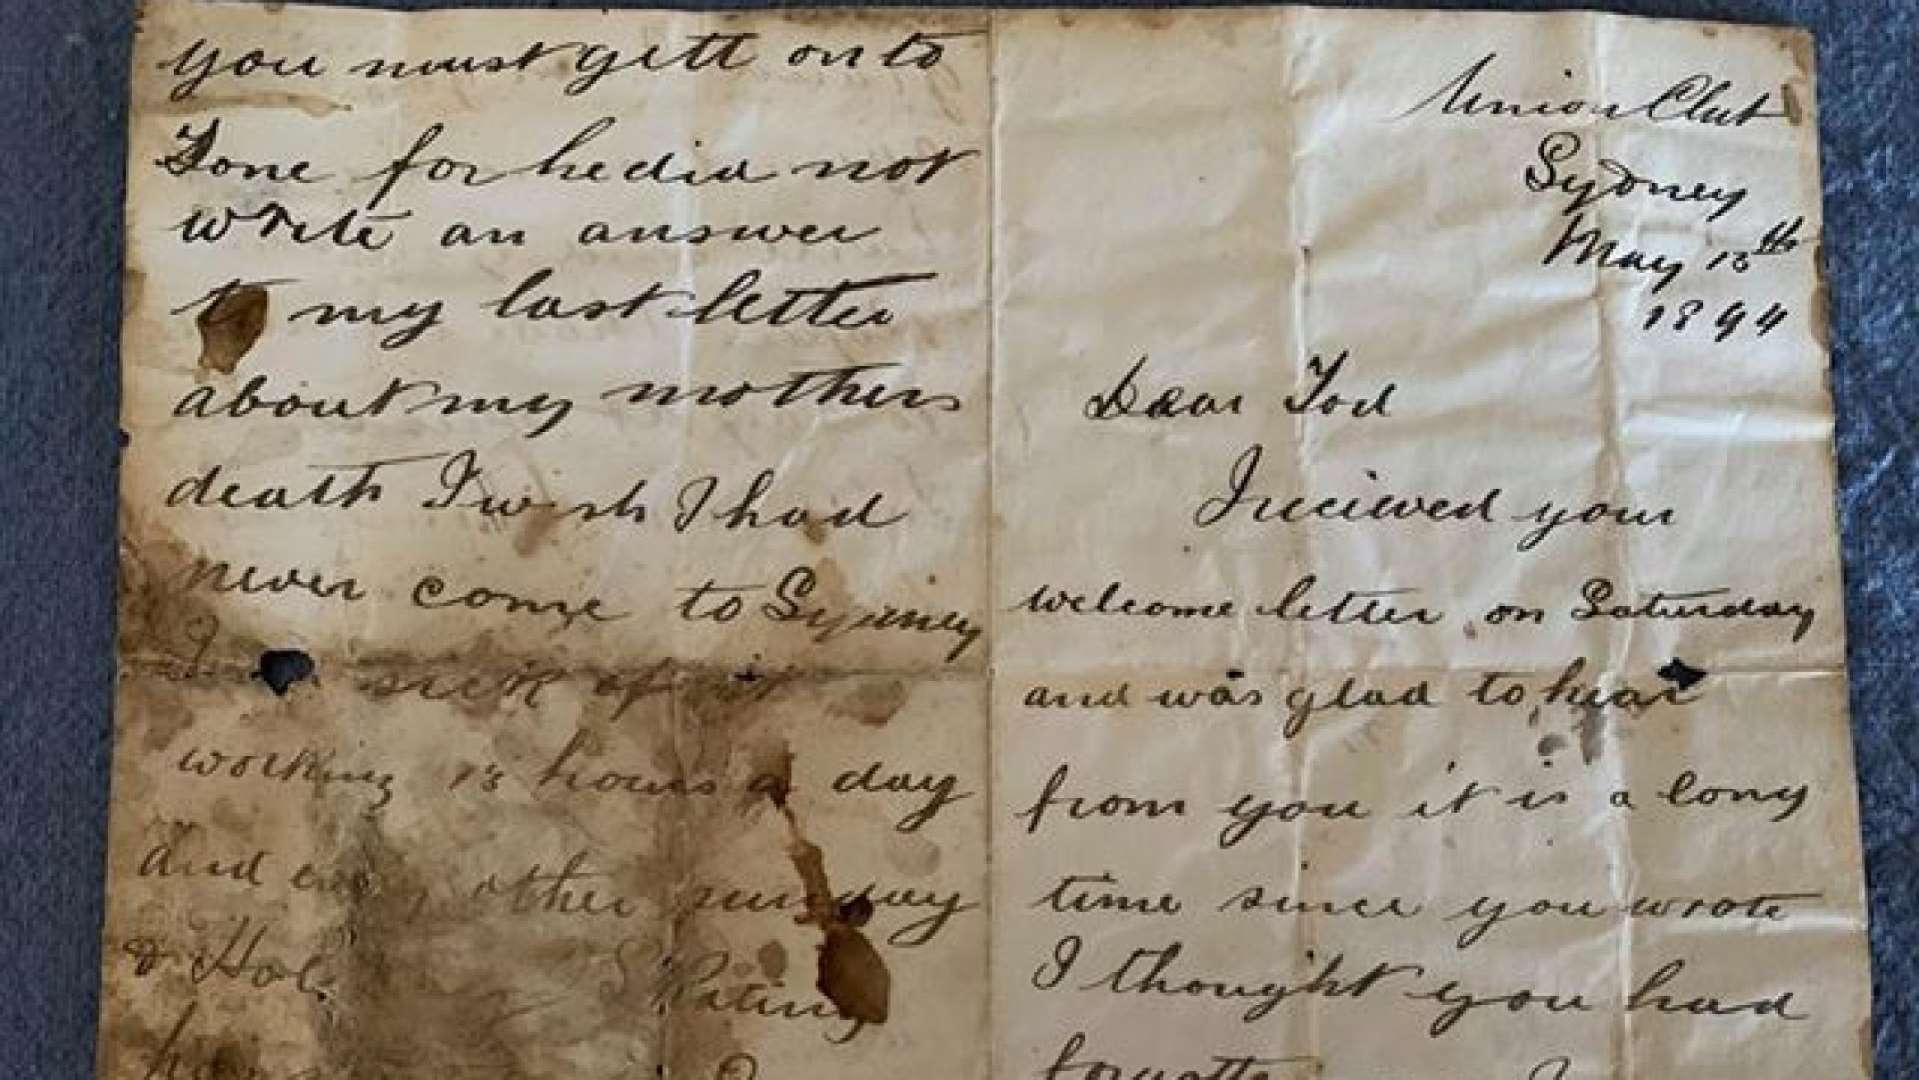 Union Club
Sydney
May 15th
1894
Dear Tod
I recieved your
welcome letter on Saturday
and was glad to hear
from you it is a long
time since you wrote
I thought you had
you must gett on to
Tone for he did not
write an answer
to my last letter
about my mothers
death I wish I had
never come to Sydney
I sick of it
working 15 hours a day
and every other sunday
Skating